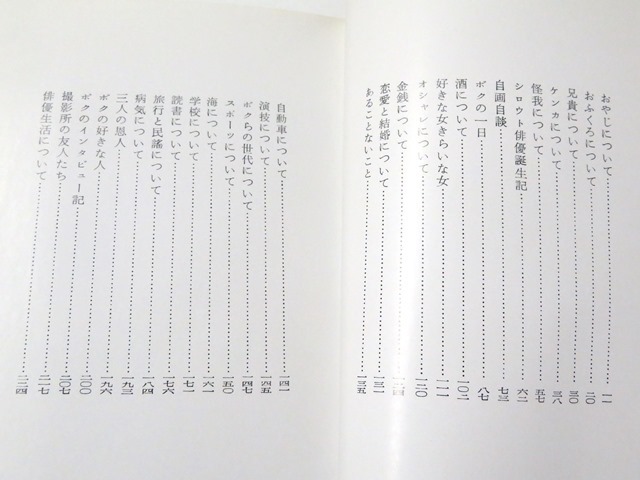 おやじについて……一一
おふくろについて……二〇
兄貴について……三〇
ケンカについて……三八
怪我について……五七
シロウト俳優誕生記……六二
自画自談……七三
ボクの一日……八七
酒について……一〇二
好きな女きらいな女……一一一
オシャレについて……一二〇
金銭について……一二四
恋愛と結婚について……一三一
あることないこと……一三五
自動車について……一四一
演技について……一四五
ボクらの世代について……一四七
スポーツについて……一五〇
海について……一六一
学校について……一七一
読書について……一七六
旅行と民謡について……一八四
病気について……一九三
三人の恩人……一九六
ボクの好きな人……二〇〇
ボクのインタビュー記……二〇七
撮影所の友人たち……二一七
俳優生活について……二三四